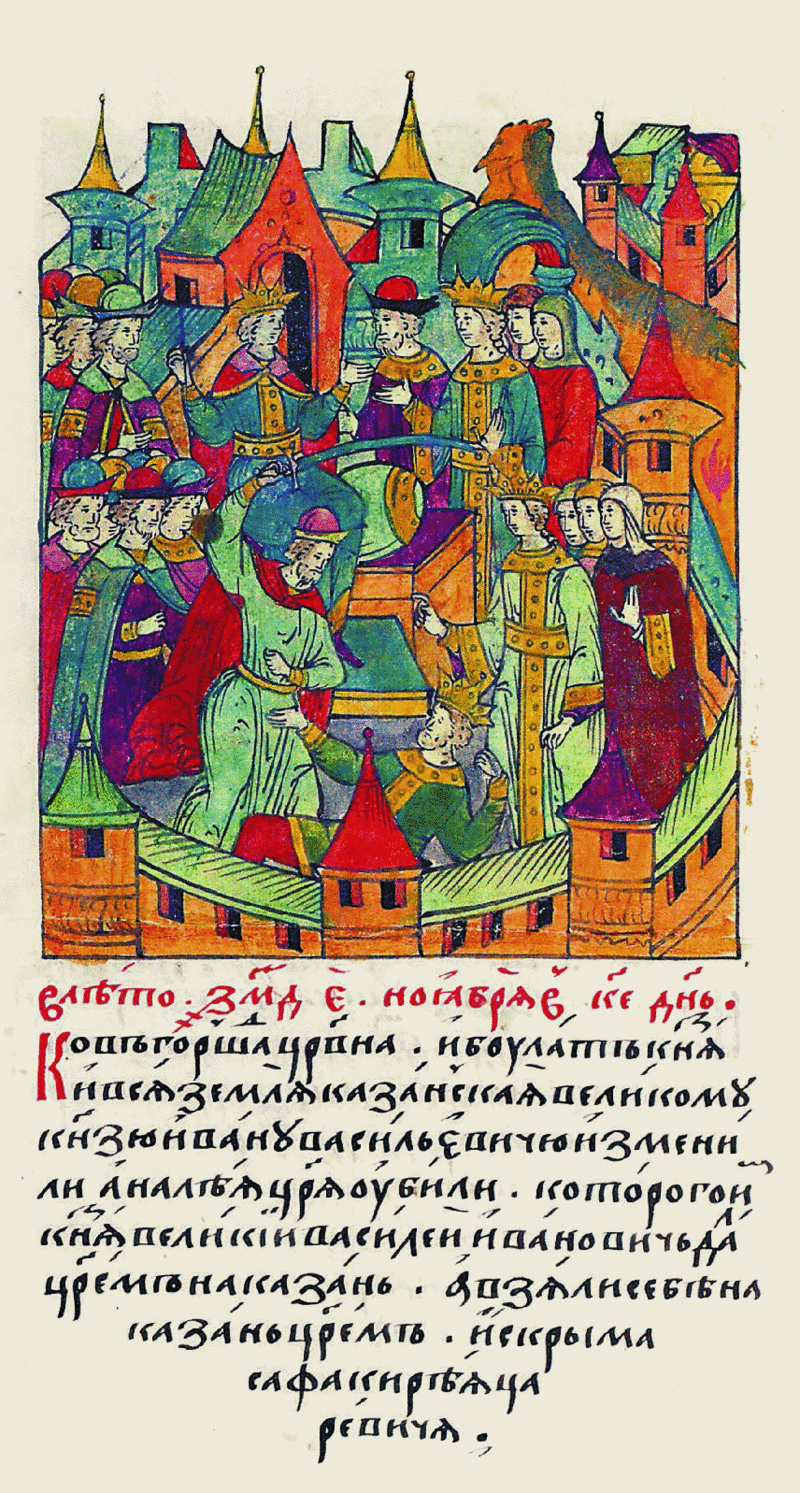 влѣто . зм҃д е҃ . ноꙗбрѧ в ке҃ днь .
Ковгоршацрвна . ибоулаткнѧ
ивсѧземлѧказанскаѧвеликомꙋ
кнзюиванꙋвасильєвичюизмени
ли аналѣѧцрѧоубили . которогои
кнѧвеликїивасилеиивановичьда
цремънаказань . авзѧлисебѣна
казаньцремъ . искрыма
сафакирѣѧца
ревичѧ .